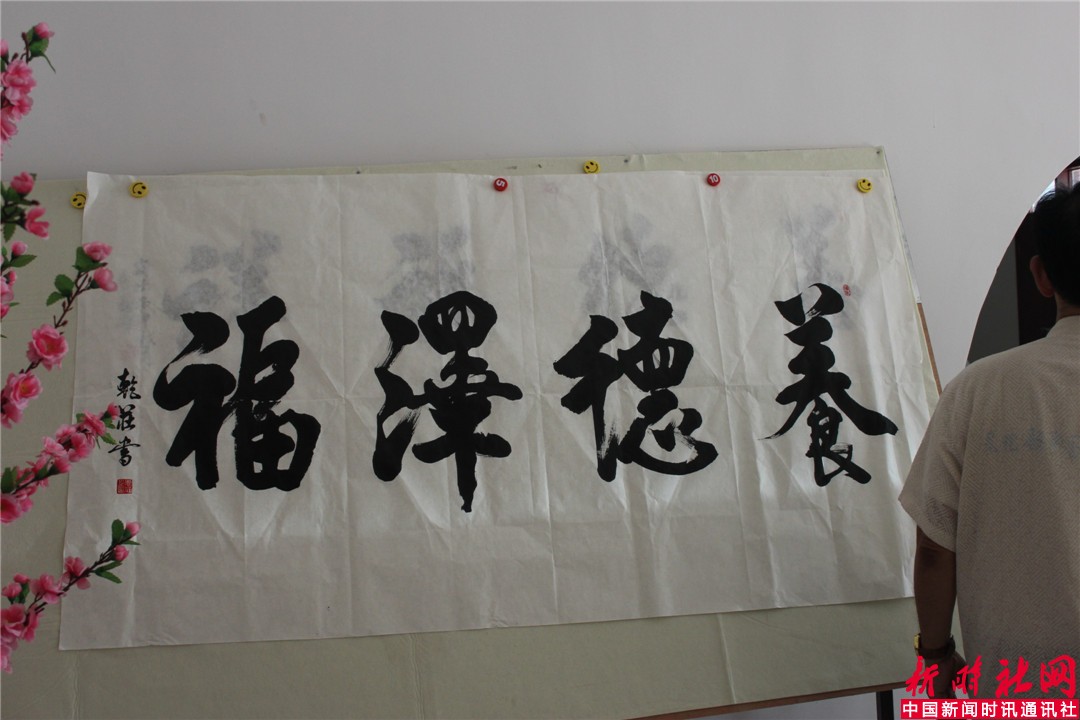 養德澤福
乾莊書
5
10
新时社网
中国新闻时讯通讯社